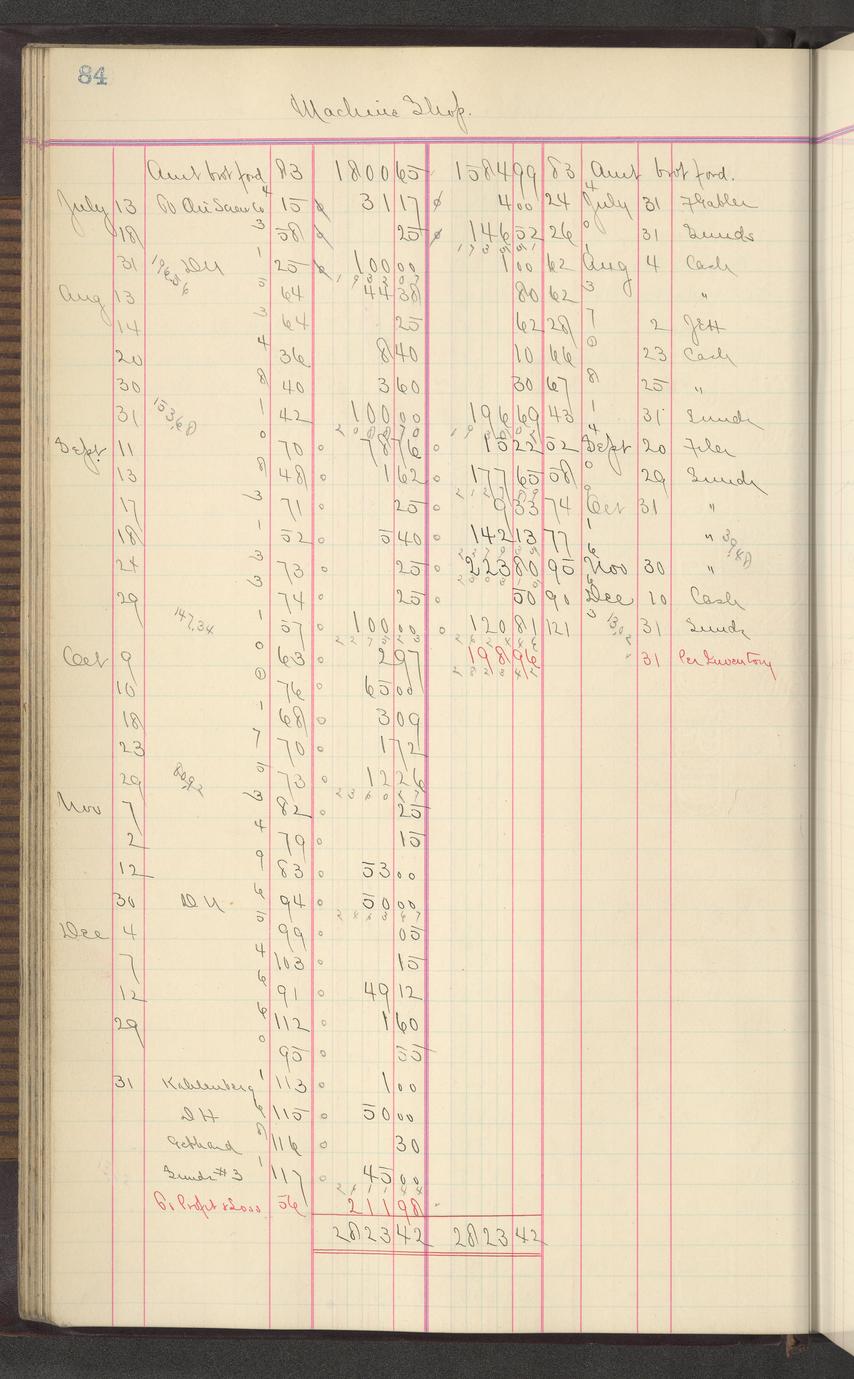 84
Machine Shop.
Amt brot ford. 83 1800 65 1584 99 83 Amt brot ford.
July 13 15 31 17 4 00 24 July 31
18 3 58 25 146 52 26 31 Sunds
31 D H 1 25 100 00 1 00 62 Aug 4 Cash
Aug 13 5 64 44 38 80 62 3 "
14 3 64 25 62 28 7 2
20 4 36 8 40 10 66 23 Cash
30 8 40 3 60 30 67 8 25 "
31 153,68 1 42 100 00 196 69 43 1 31 Sunds
Sept. 11 0 70 78 76 15 22 52 Sept 20 Filer
13 8 48 1 62 177 65 58 0 29 Sunds
17 3 71 25 9 33 74 Oct 31 "
18 1 52 5 40 142 13 77 1 "
24 3 73 25 223 80 95 Nov 30 "
29 3 74 25 50 90 Dec 10 Cash
147,34 1 57 100 00 120 81 121 3 31 Sunds
Oct 9 0 63 2 97 198 96 31 Per Inventory
10 76 65 00
18 1 68 3 09
23 7 70 1 72
29 80,92 5 73 12 26
Nov 7 3 82 25
2 4 79 15
12 9 83 53 00
30 D H 6 94 50 00
Dec 4 5 99 05
7 4 103 15
12 6 91 49 12
29 6 112 1 60
0 95 55
31 Kahlenberg 1 113 1 00
D H 6 115 50 00
Gebhard 8 116 30
Sunds #3 1 117 45 00
Profit & Loss 56 211 98
2823 42 2823 42